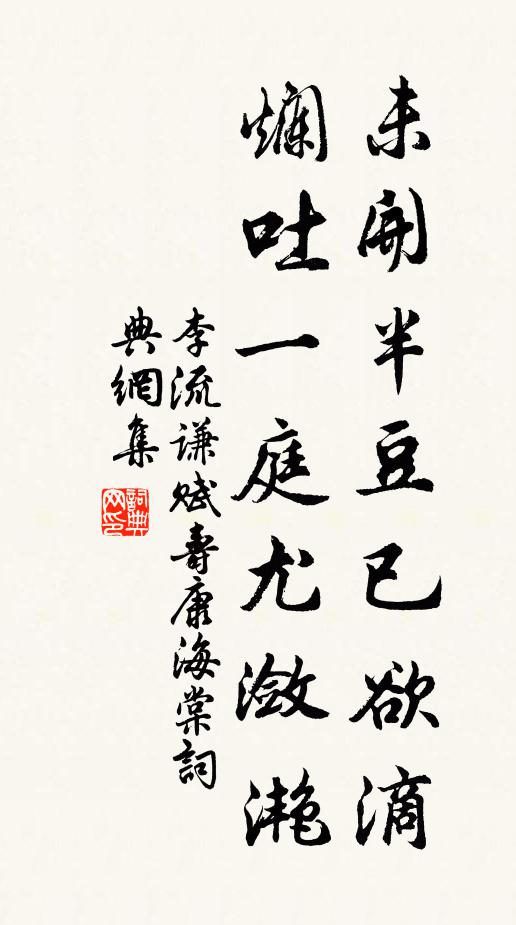 未開半豆已欲滴
爛吐一庭尤瀲灔
李流謙賦壽康海棠詞
典網集
詞典网印